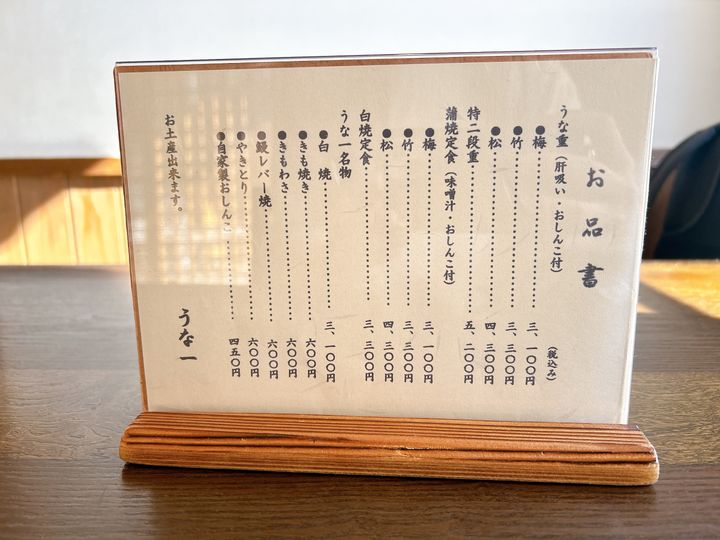 お品書
(税込み)
うな重(肝吸い・おしんこ付)
●梅……三、一〇〇円
●竹……三、三〇〇円
●松……四、三〇〇円
特二段重……五、二〇〇円
蒲焼定食(味噌汁・おしんこ付)
●梅……三、一〇〇円
●竹……三、三〇〇円
●松……四、三〇〇円
白焼定食……三、三〇〇円
うな一名物
●白焼……三、一〇〇円
●きも焼き……六〇〇円
●きもわさ……六〇〇円
●鰻レバー焼……六〇〇円
●やきとり……六〇〇円
●自家製おしんこ……四五〇円
お土産出来ます。
うな一